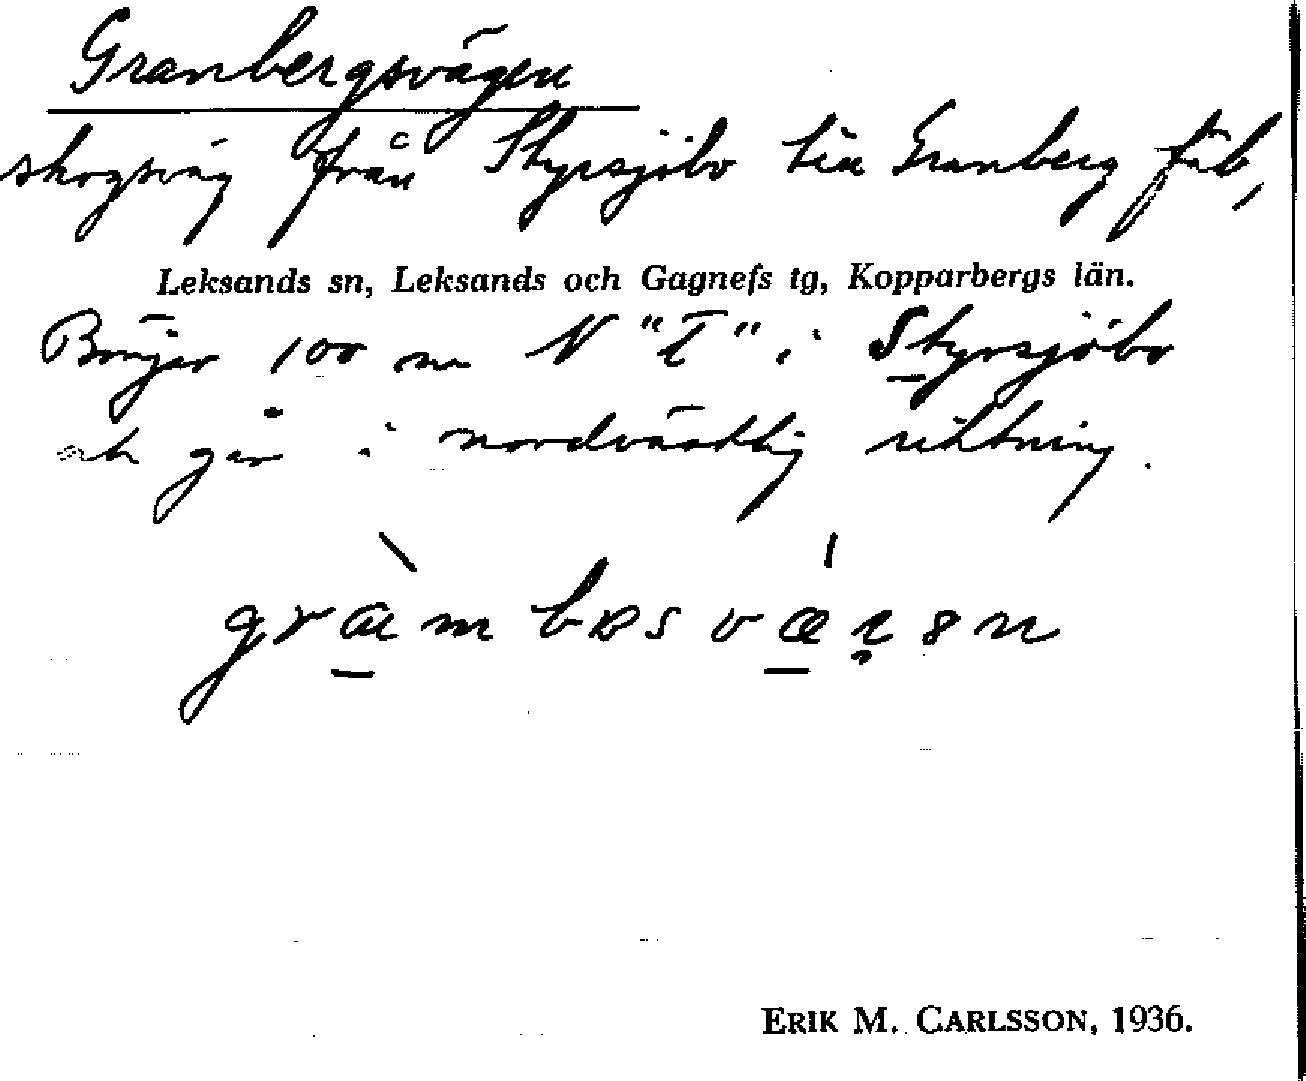 Granbergsvägen
skogsväg från Styrsjöbo till Granberg fäb,
Leksands sn, Leksands och Gagnefs tg, Kopparbergs län.
Börjar 100 m N "T" i Styrsjöbo
och går i nordvästlig riktning.
ERIK M. CARLSSON, 1936.